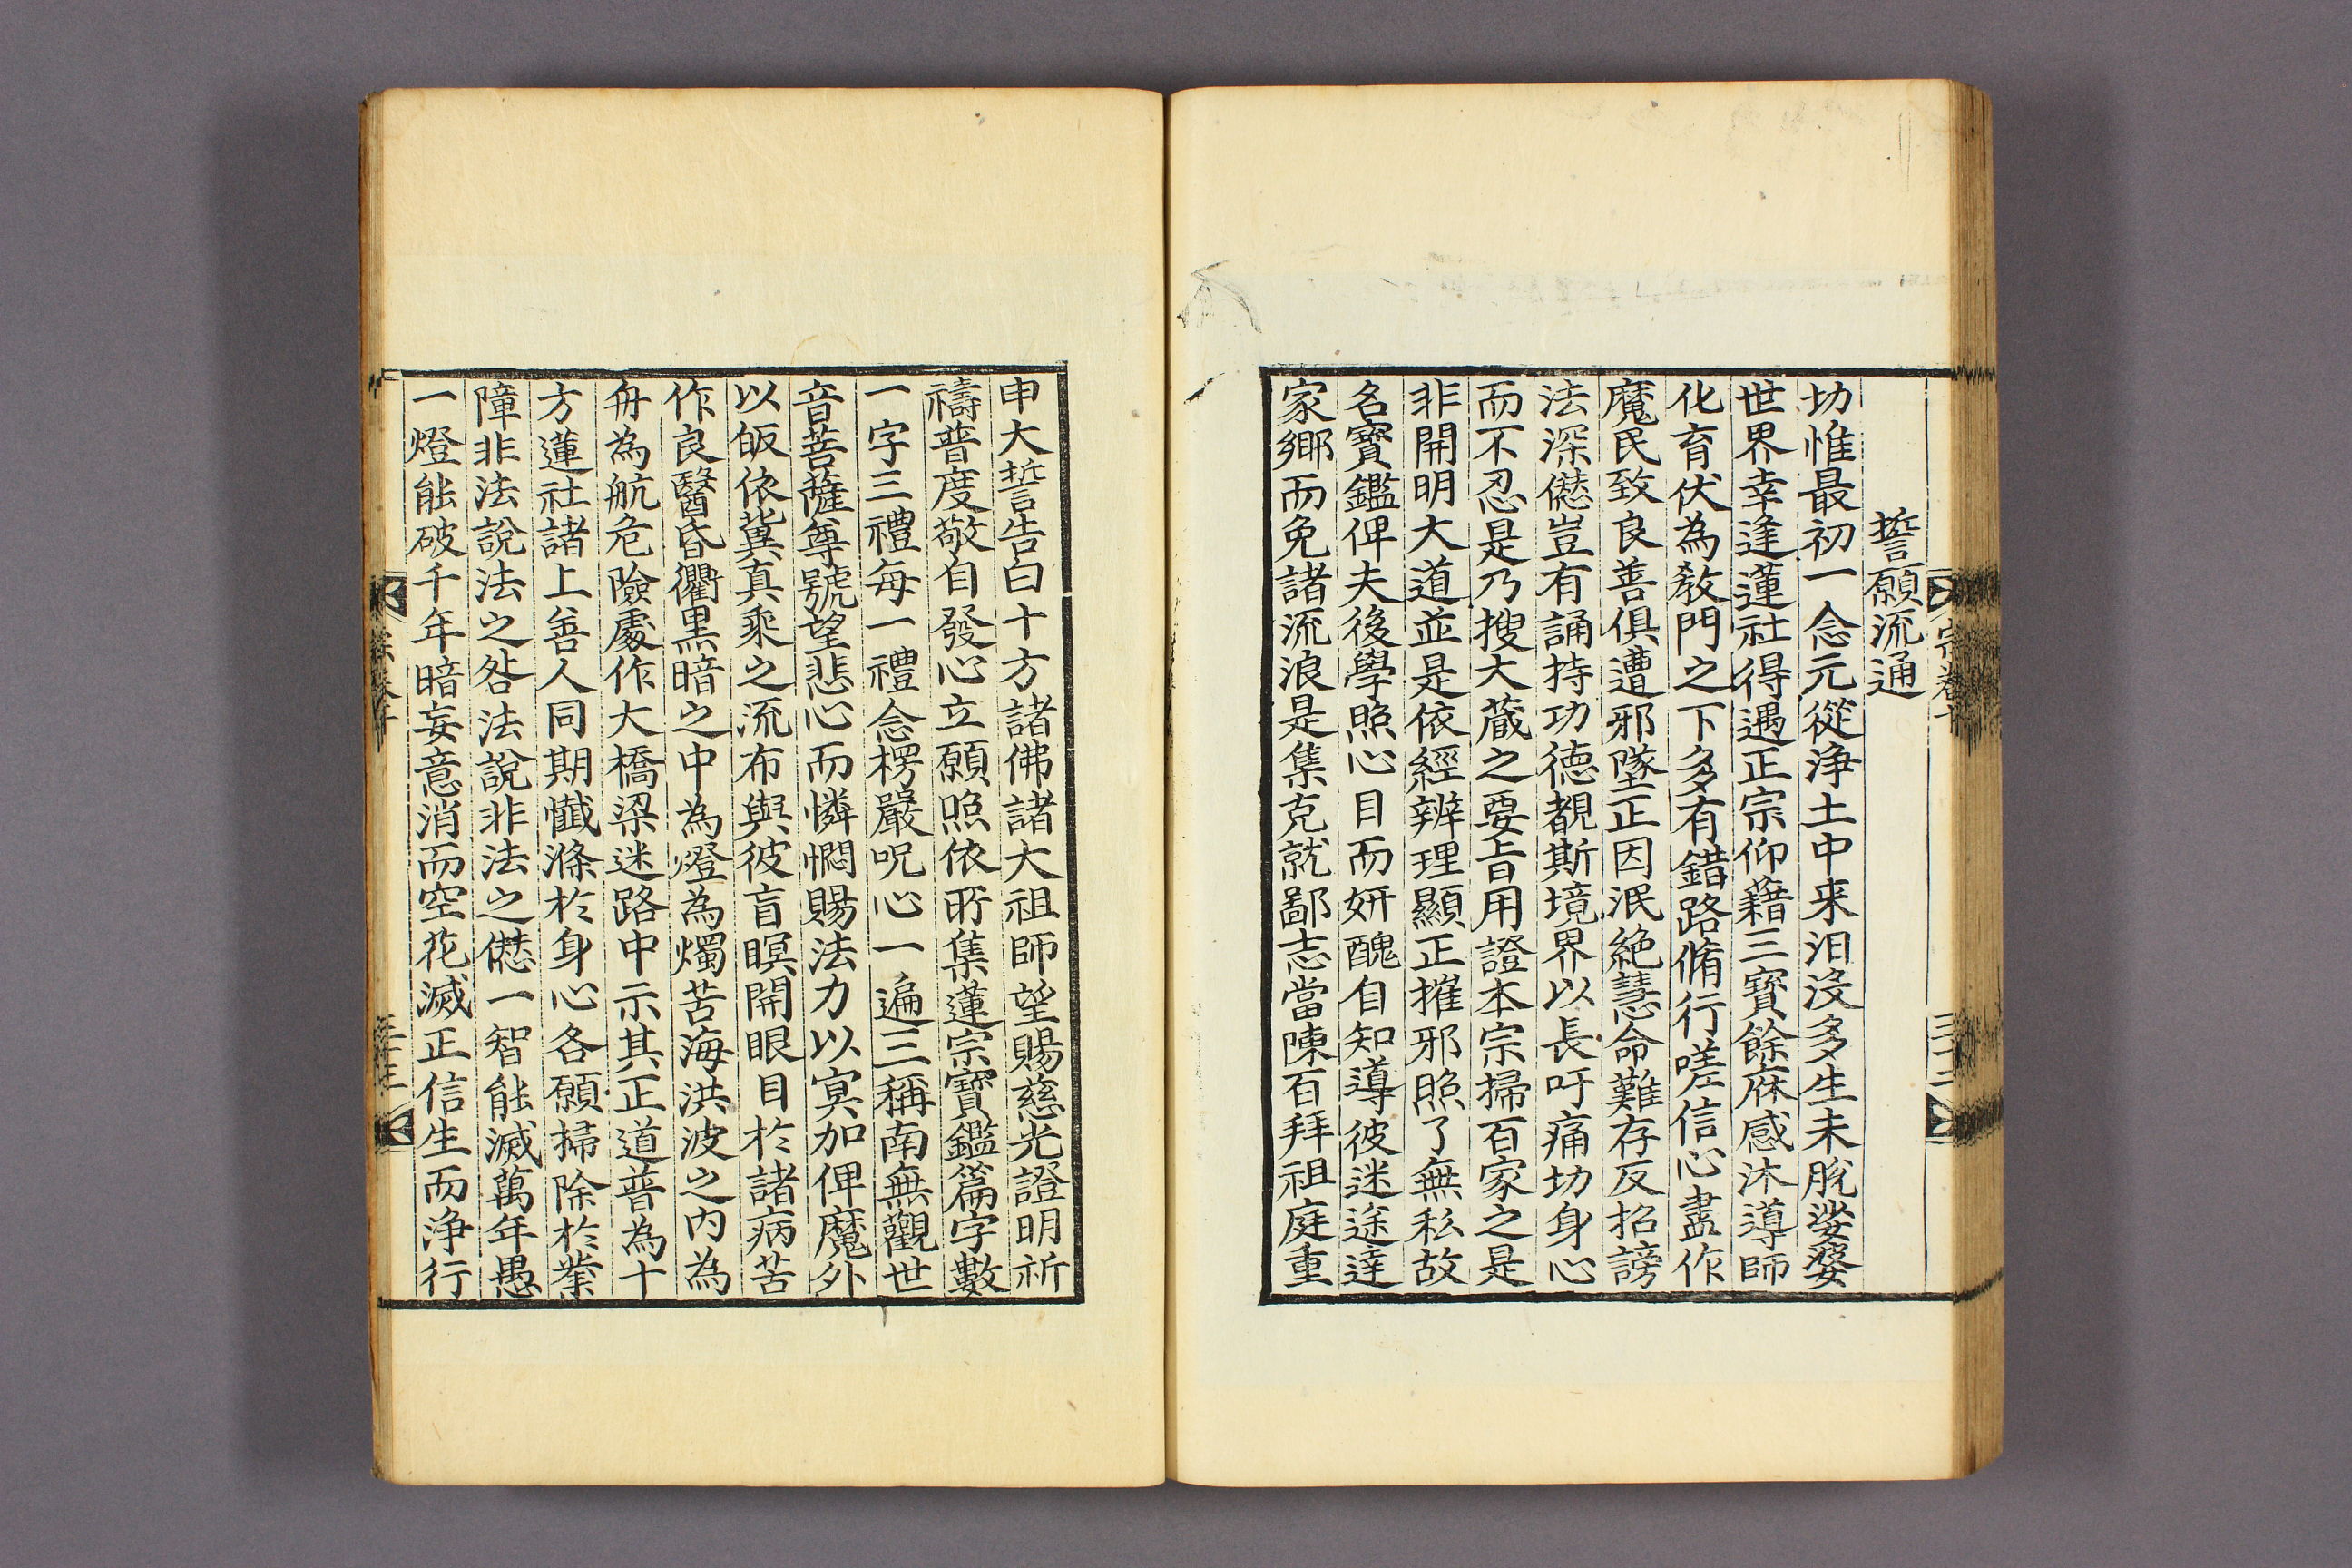 宗卷十
三十二
誓願流通
切惟最初一念元從浄土中来汨没多生未脫娑婆
世界幸逢蓮社得遇正宗仰藉三寶餘庥感沐導師
化育伏為敎門之下多有錯路脩行嗟信心盡作
魔民致良善俱遭邪墜正因泯絶慧命難存反招謗
法深愆豈有誦持功德覩斯境界以長吁痛切身心
而不忍是乃搜大蔵之要旨用證本宗掃百家之是
非開明大道並是依經辨理顯正摧邪照了無私故
名寶鑑俾夫後學照心目而妍醜自知導彼迷途達
家鄉而免諸流浪是集克就鄙志當陳百拜祖庭重
申大誓告白十方諸佛諸大祖師望賜慈光證明祈
禱普度敬自發心立願照依所集蓮宗寶鑑篇字數
一字三禮每一禮念楞嚴呪心一遍三稱南無觀世
音菩薩尊號望悲心而憐憫賜法力以冥加俾魔外
以皈依冀真乘之流布與彼盲瞑開眼目於諸病苦
作良醫昏衢黑暗之中為燈為燭苦海洪波之内為
舟為航危險處作大橋梁迷路中示其正道普為十
方蓮社諸上善人同期懺滌於身心各願掃除於業
障非法說法之咎法說非法之愆一智能滅萬年愚
一燈能破千年暗妄意消而空花滅正信生而浄行